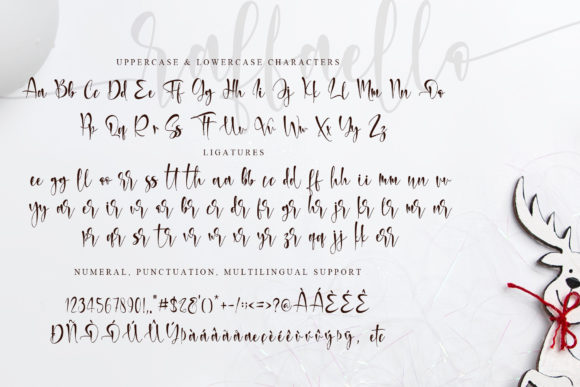 raffaello
UPPERCASE & LOWERCASE CHARACTERS
Aa Bb Cc Dd Ee Ff Gg Hh Ii Jj Kk Ll Mm Nn Oo
Pp Qq Rr Ss Tt Uu Vv Ww Xx Yy Zz
LIGATURES
ee gg ll oo rr ss tt th aa bb cc dd ff hh ii mm nn vv
yy ar er ir vr or br cr dr fr gr hr jr kr lr mr nr
pr qr sr tr vr wr xr yr zr qq jj kk err
NUMERAL, PUNCTUATION, MULTILINGUAL SUPPORT
12345678901.,"#$%&'()*+-/:;<=>?@ÀÁÈÉÊ